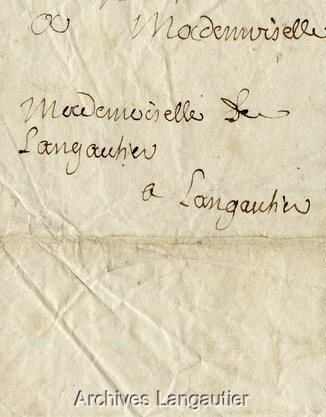 a Mademoiselle
Mademoiselle De
Langautier
a Langautier
Archives Langautier